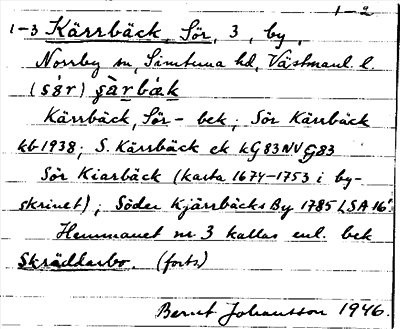 1-2
1-3 Kärrbäck, Sör, 3, by,
Norrby sn, Simtuna hd, Västmanl. l.
(sø̀r) çàrbäk
Kärrbäck, Sör- bek; Sör Kärrbäck
kb 1938; S. Kärrbäck ek kG83NV G83
Sör Kiarbäck (karta 1674-1753 i by-
skrinet); Söder Kjärrbäcks By 1785 LSA 16.
Hemmanet nr 3 kallas enl. bek
Skräddarbo. (forts)
Bernt Johansson 1946.